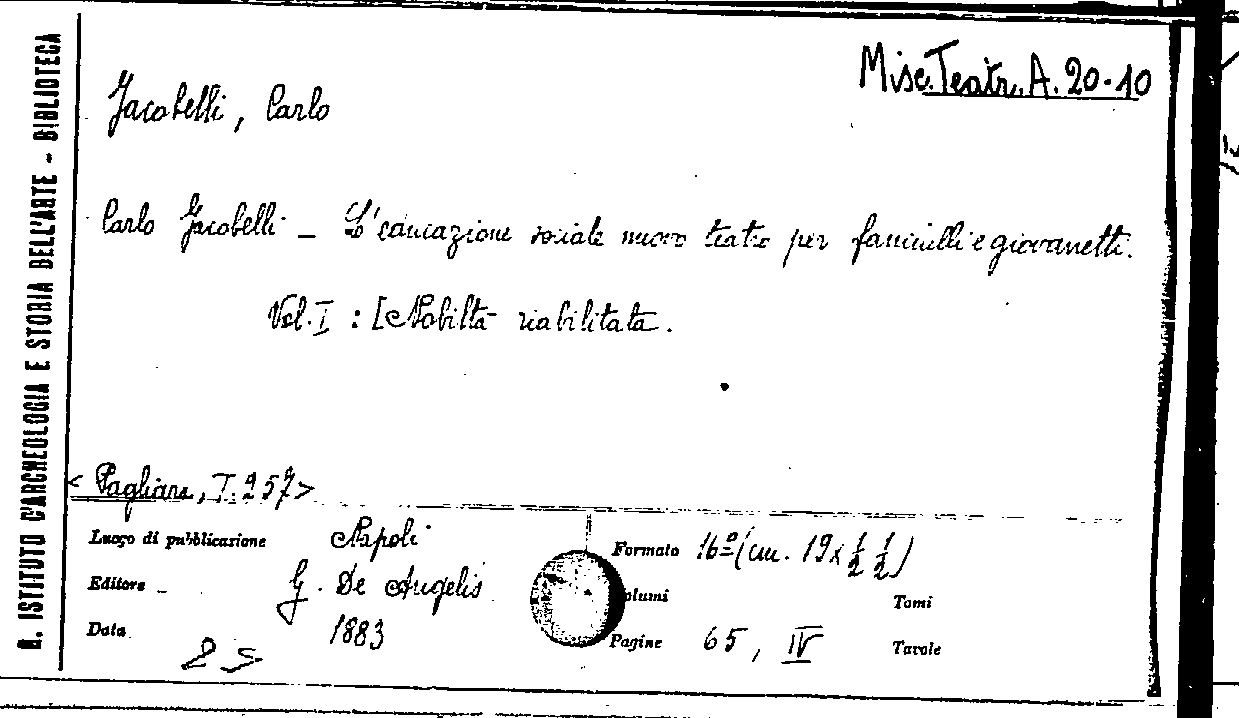 R. ISTITUTO D'ARCHEOLOGIA E STORIA DELL'ARTE - BIBLIOTECA
Misc. Teatr. A. 20-10
Jacobelli, Carlo
Carlo Jacobelli - L'educazione sociale nuovo teatro per fanciulli e giovanetti.
Vol. I : [Nobiltà riabilitata.
< Pagliara, I. 257>
Luogo di pubblicazione Napoli
Editore G. De Angelis
Data 1883
25
Formato 16º (cm. 19 x
olumi Tomi
Pagine 65, IV Tavole